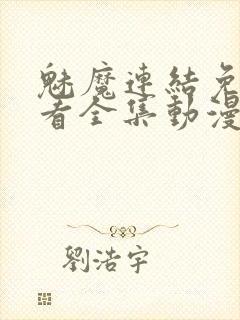 魅魔連結免
看全集動漫
劉浩宇